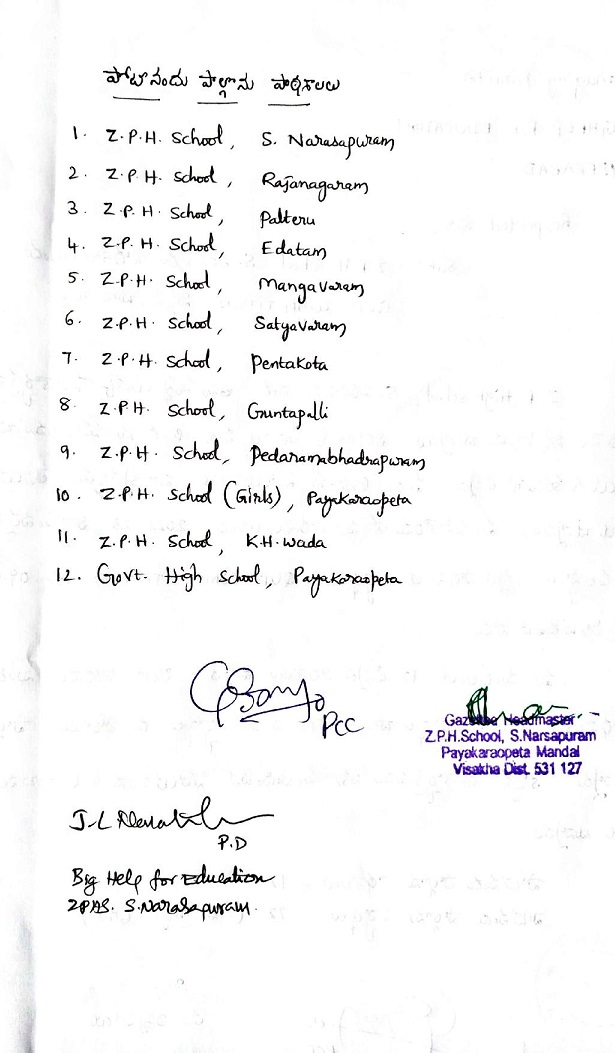 పోటీనందు పాల్గొను పాఠశాలలు
1. Z.P.H. School, S. Narasapuram
2. Z.P.H. School, Rajanagaram
3. Z.P.H. School, Palteru
4. Z.P.H. School, Edatam
5. Z.P.H. School, Mangavaram
6. Z.P.H. School, Satyavaram
7. Z.P.H. School, Pentakota
8. Z.P.H. School, Guntapalli
9. Z.P.H. School, Pedaramabhadrapuram
10. Z.P.H. School (Girls), Payakaraopeta
11. Z.P.H. School, K.H. Wada
12. Govt. High School, Payakaraopeta
PCC
Gazetted Headmaster
Z.P.H.School, S.Narsapuram
Payakaraopeta Mandal
Visakha Dist. 531 127
P.D
Big Help for Education
S. Narasapuram.